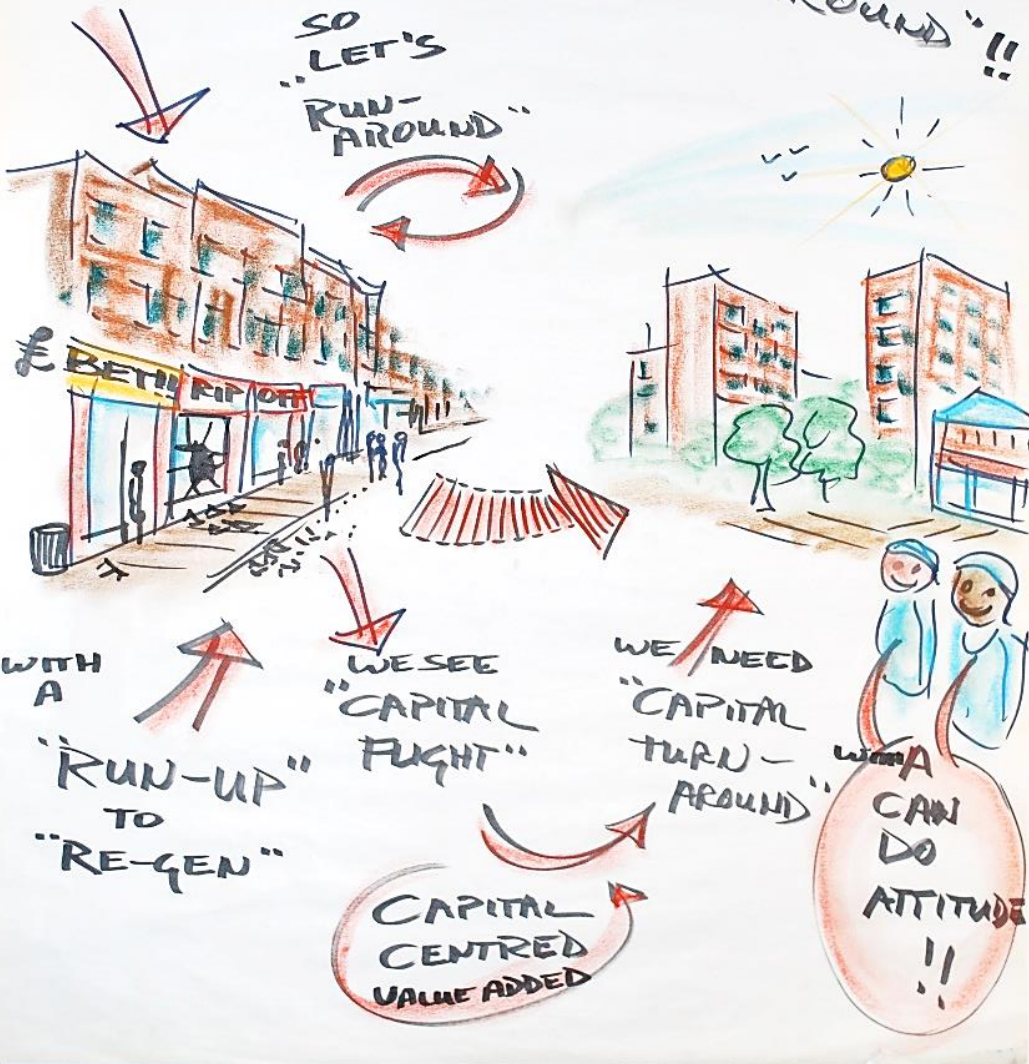 ROUND"!!
SO
LET'S
"RUN-
AROUND"
£ BET!! RIP OFF
WITH
A
"RUN-UP"
TO
"RE-GEN"
WE SEE
"CAPITAL
FLIGHT"
WE NEED
"CAPITAL
TURN-
AROUND"
CAPITAL
CENTRED
VALUE ADDED
WITH A
CAN
DO
ATTITUDE
!!